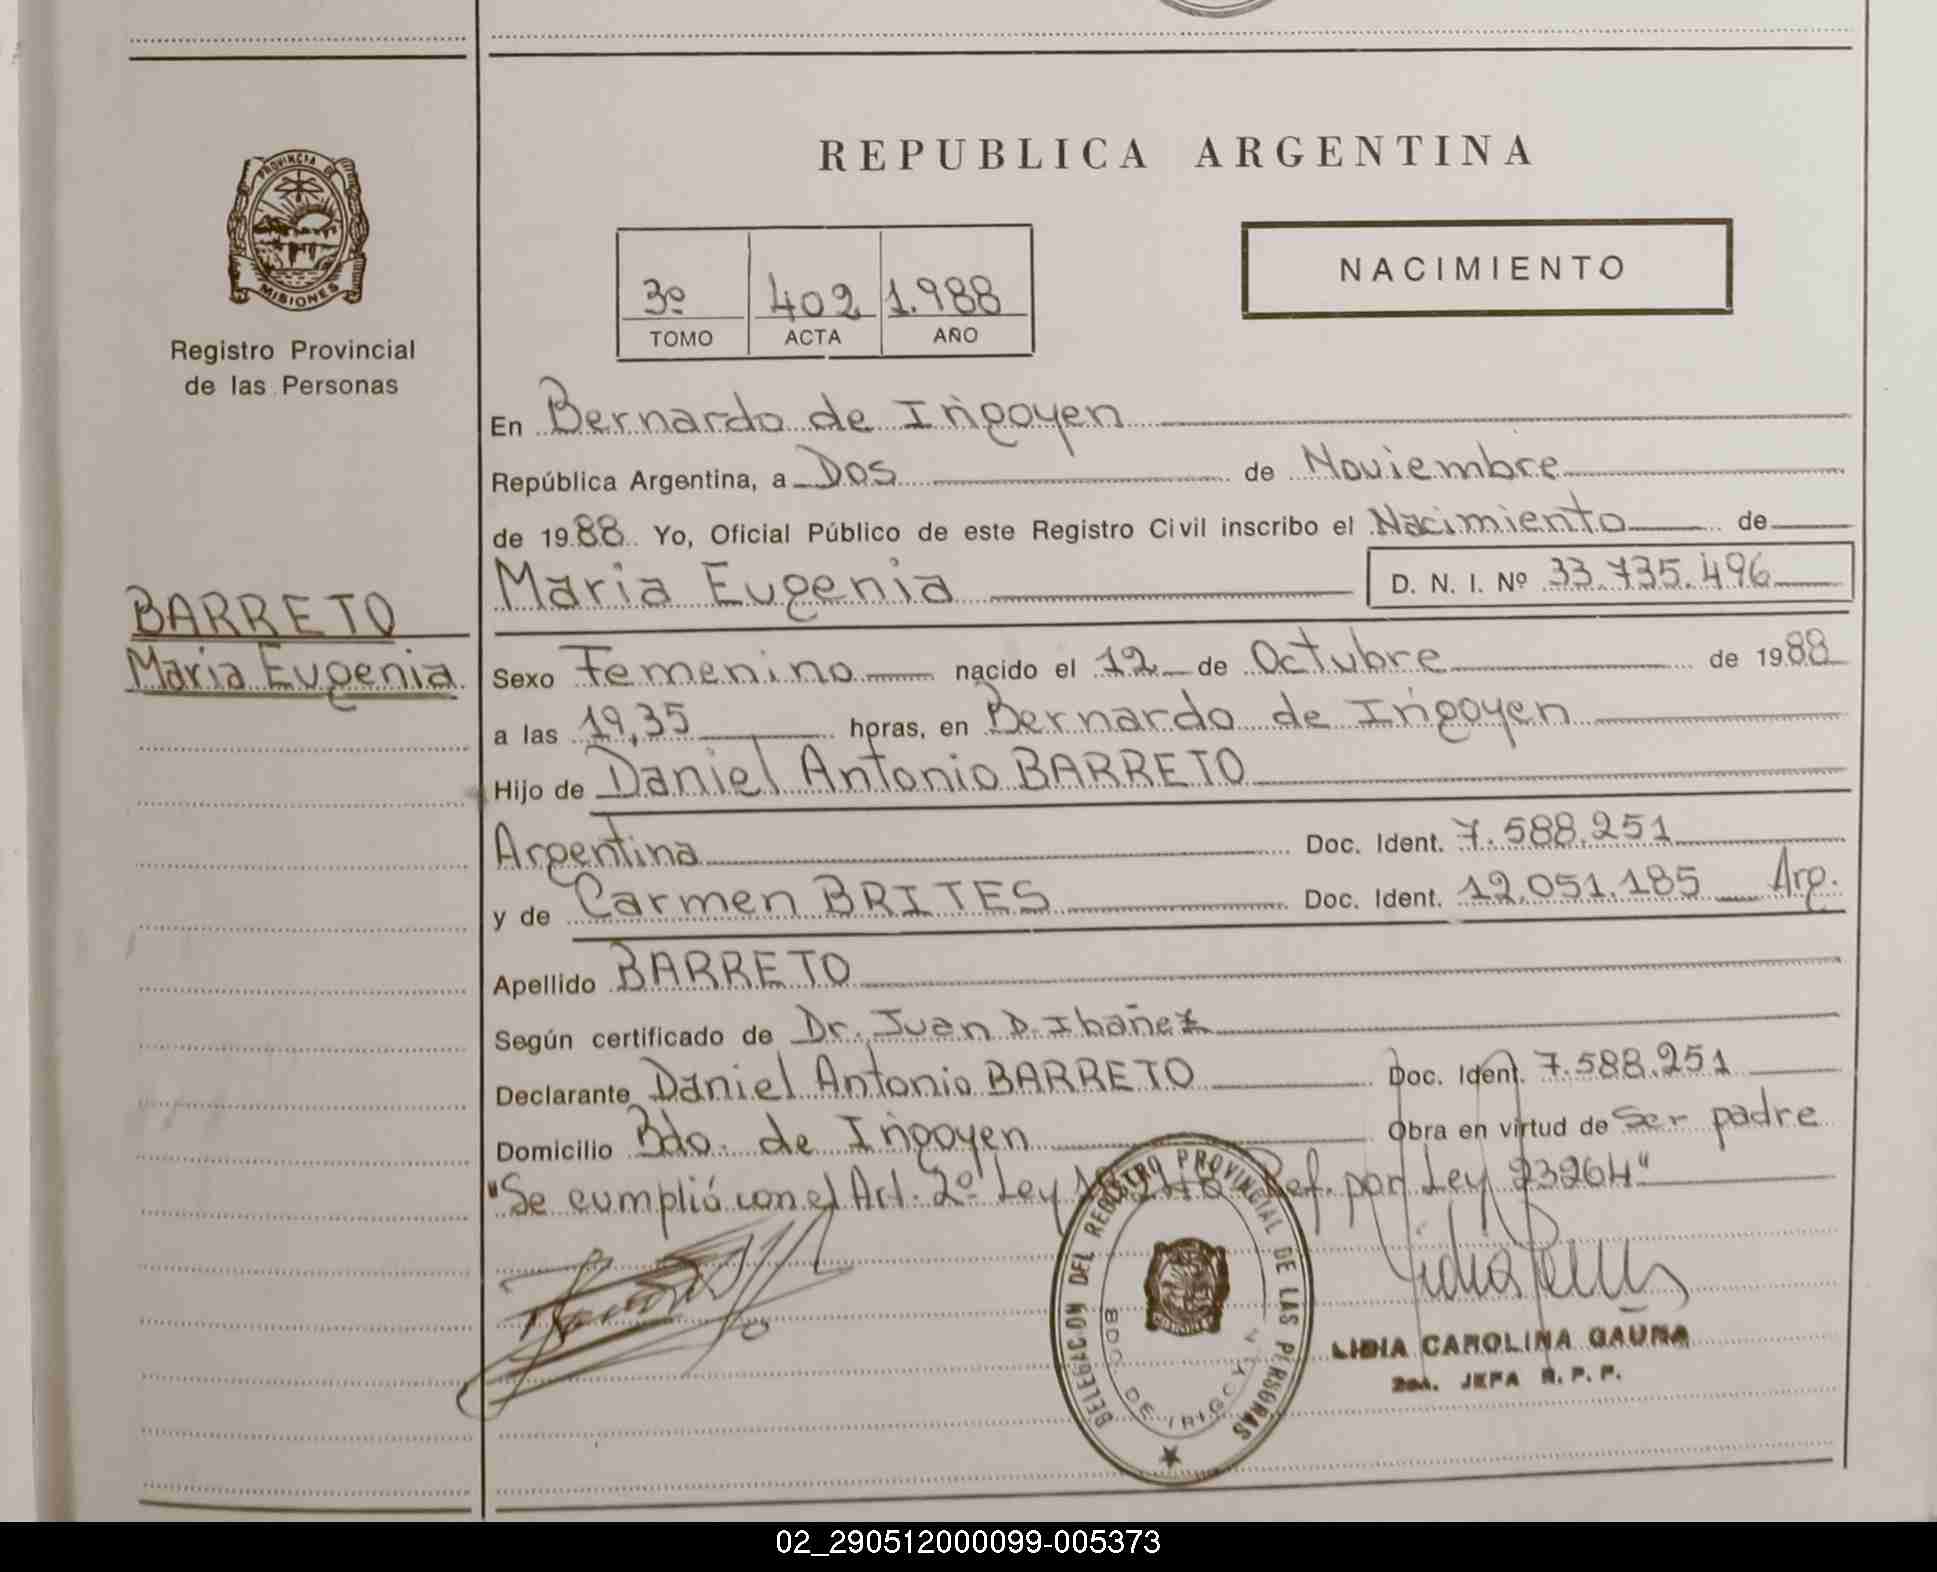 REPUBLICA ARGENTINA
PROVINCIA DE
MISIONES
Registro Provincial
de las Personas
3º 402 1.988
TOMO ACTA AÑO
NACIMIENTO
En Bernardo de Irigoyen
República Argentina, a Dos de Noviembre
de 1988 Yo, Oficial Público de este Registro Civil inscribo el Nacimiento de
Maria Eugenia D. N. I. Nº 33.735.496
BARRETO
Maria Eugenia
Sexo Femenino nacido el 12 de Octubre de 1988
a las 19,35 horas, en Bernardo de Irigoyen
Hijo de Daniel Antonio BARRETO
Argentina Doc. Ident. 7.588.251
y de Carmen BRITES Doc. Ident. 12.051.185 Arg.
Apellido BARRETO
Según certificado de Dr. Juan D. Ibañez
Declarante Daniel Antonio BARRETO Doc. Ident. 7.588.251
Domicilio Bdo. de Irigoyen Obra en virtud de Ser padre
"Se cumplió con el Art. 2º Ley Ref. por Ley 23264"
DELEGACION DEL REGISTRO PROVINCIAL DE LAS PERSONAS
BDO. DE IRIGOYEN
LIDIA CAROLINA GAUNA
2da. JEFA R. P. P.
02_290512000099-005373